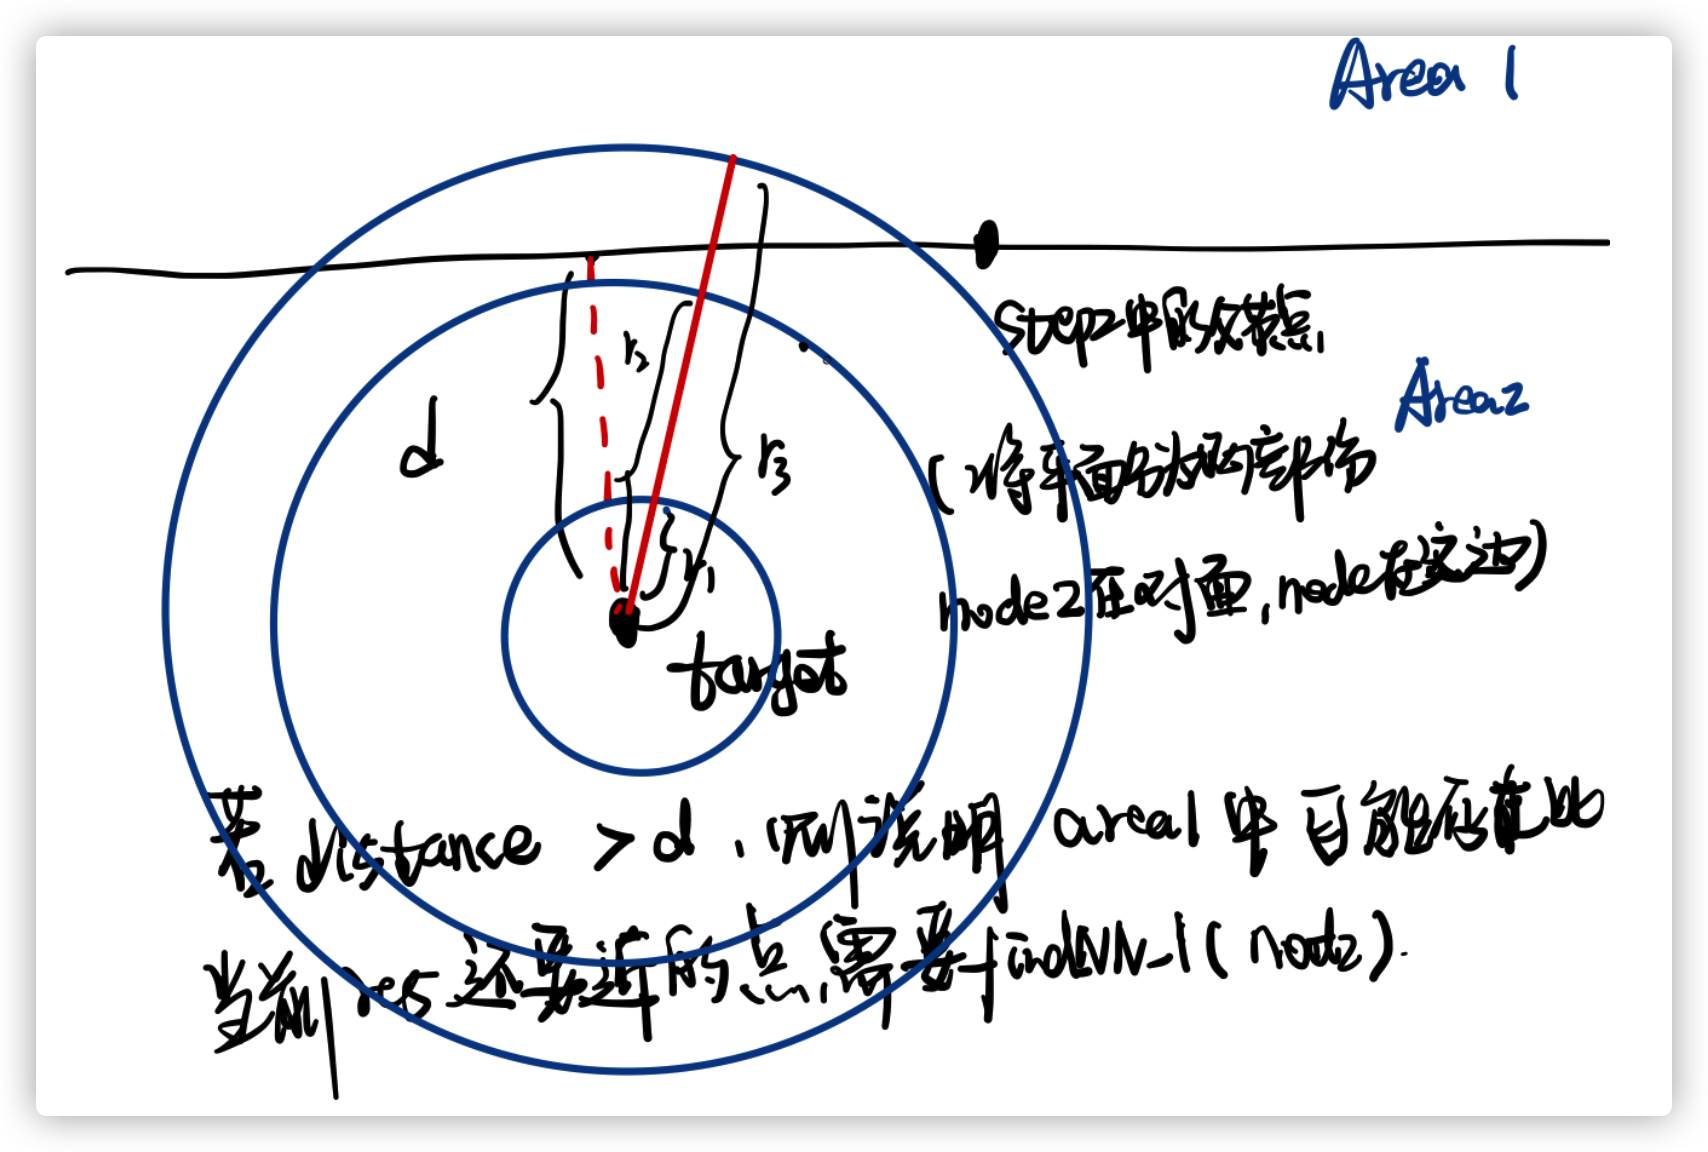 Area 1
step2中的父节点
Area2
(将平面分为两部份
node2在对面,node在这边)
d
r2
r3
r1
target
若distance > d,则说明 area1中可能存在比
当前res还要近的点,需要findNN_1(node2).